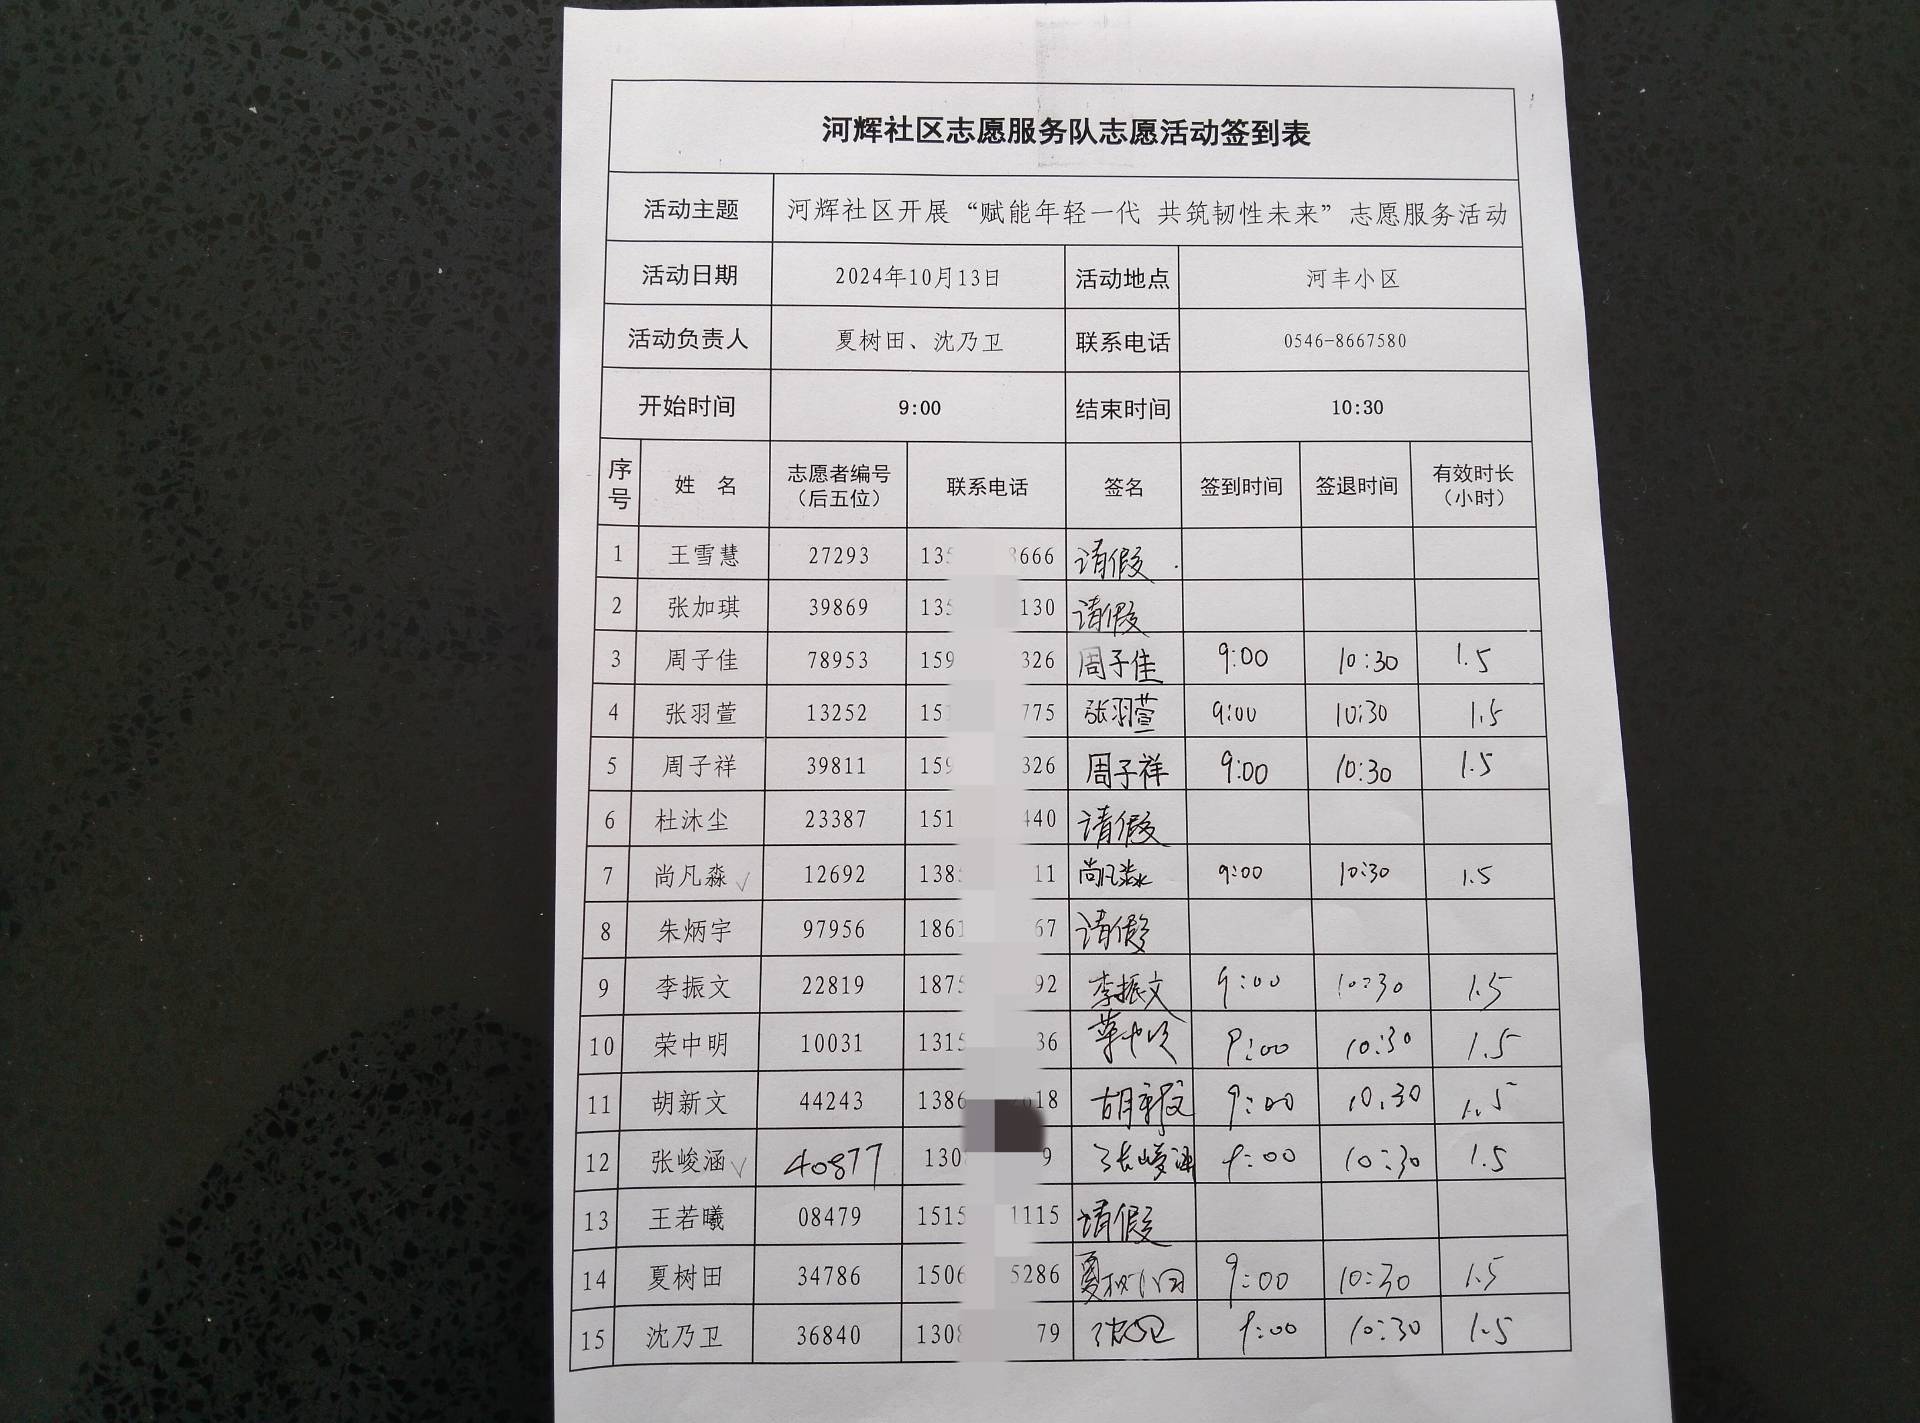 河辉社区志愿服务队志愿活动签到表
活动主题 河辉社区开展“赋能年轻一代 共筑韧性未来”志愿服务活动
活动日期 2024年10月13日 活动地点 河丰小区
活动负责人 夏树田、沈乃卫 联系电话 0546-8667580
开始时间 9:00 结束时间 10:30
序号 姓 名 志愿者编号（后五位） 联系电话 签名 签到时间 签退时间 有效时长（小时）
1 王雪慧 27293 135 8666 请假
2 张加琪 39869 135 130 请假
3 周子佳 78953 159 326 周子佳 9:00 10:30 1.5
4 张羽萱 13252 15 775 张羽萱 9:00 10:30 1.5
5 周子祥 39811 159 326 周子祥 9:00 10:30 1.5
6 杜沐尘 23387 151 440 请假
7 尚凡淼 12692 138 11 尚凡淼 9:00 10:30 1.5
8 朱炳宇 97956 1861 67 请假
9 李振文 22819 1875 92 李振文 9:00 10:30 1.5
10 荣中明 10031 1315 36 荣中明 9:00 10:30 1.5
11 胡新文 44243 1386 618 胡新文 9:00 10:30 1.5
12 张峻涵 40877 130 9 张峻涵 9:00 10:30 1.5
13 王若曦 08479 1515 1115 请假
14 夏树田 34786 1506 5286 夏树田 9:00 10:30 1.5
15 沈乃卫 36840 1308 79 沈乃卫 9:00 10:30 1.5